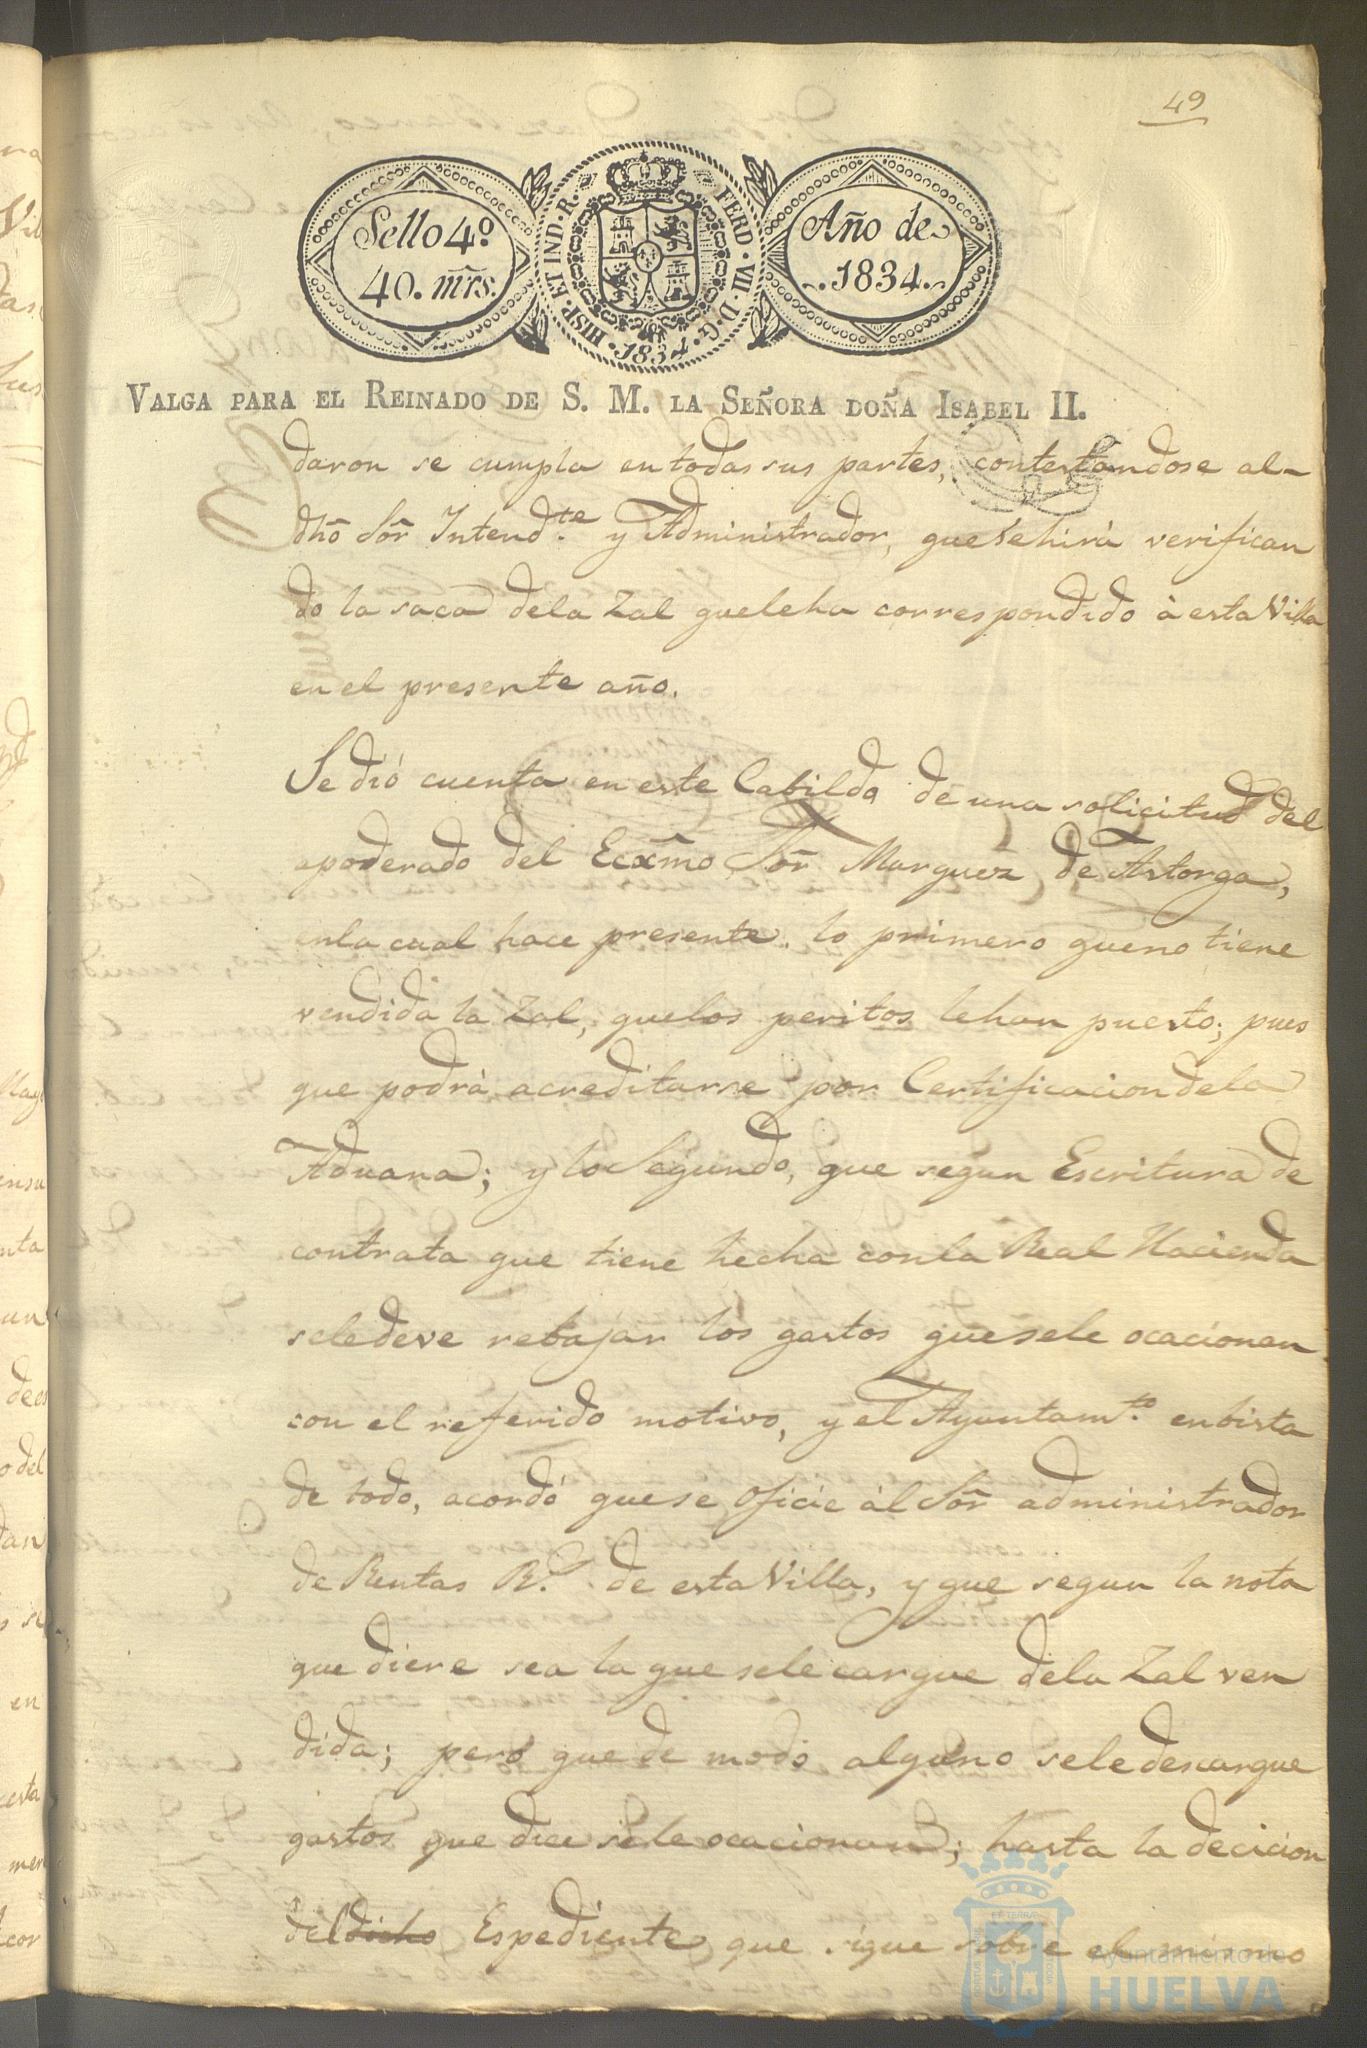 49
Sello 4º
40. mrs.
HISP. ET IND. R. FERD. VII. D. G. 1834.
Año de
1834.
VALGA PARA EL REINADO DE S. M. LA SEÑORA DOÑA ISABEL II.
daron se cumpla en todas sus partes, contestandose al
dho Sor Intend.te y Administrador, que se hirá verifican
do la saca dela Zal que le ha correspondido à esta Villa
en el presente año.
Se dió cuenta en este Cabildo de una solicitud del
apoderado del Ecxmo Sor Marquez de Astorga,
enla cual hace presente. lo primero que no tiene
vendida la Zal, quelos peritos le han puesto; pues
que podrà acreditarse por Certificacion dela
Aduana; y lo Segundo, que segun Escritura de
contrata que tiene hecha conla Real Hacienda
sele deve rebajar los gastos que sele ocacionan
con el referido motivo, y el Ayuntam.to enbista
de todo, acordó que se oficie àl Sor administrador
de Rentas R.s de esta Villa, y que segun la nota
que diere sea la que sele cargue dela Zal ven
dida; pero que de modo alguno sele descargue
gastos que dice se le ocacionan; hasta la decicion
del dicho Espediente que sigue sobre el mismo
Ayuntamiento de
HUELVA